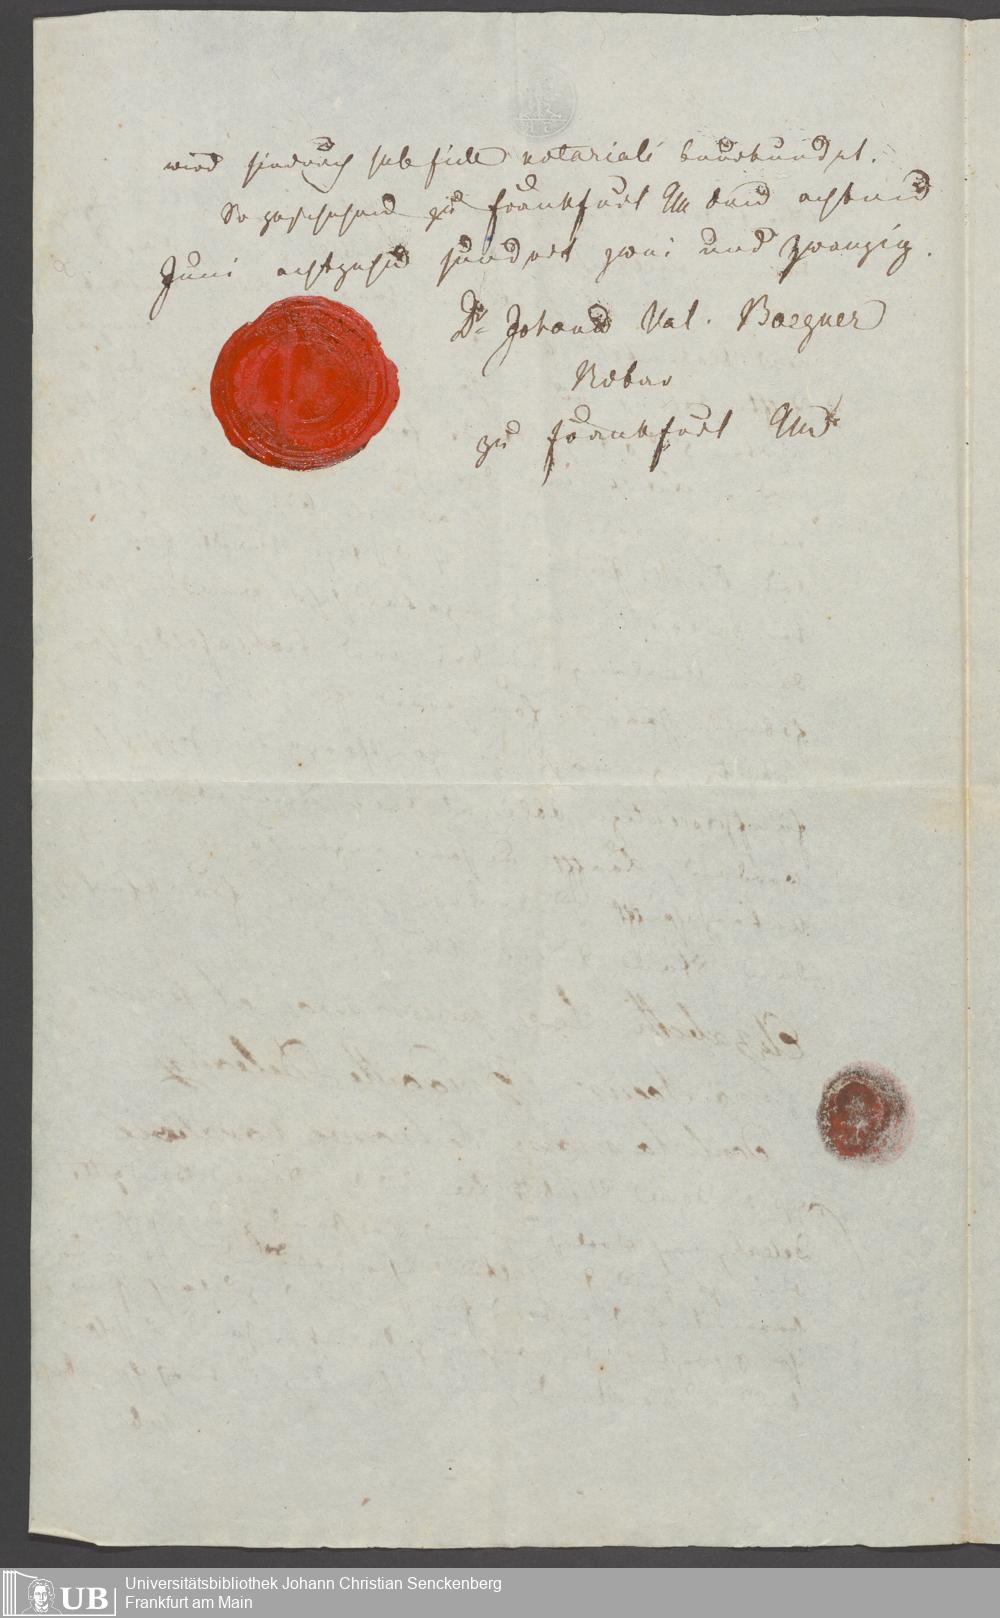 wird hierdurch sub fide notariali beurkundet.
So geschehen zu Frankfurt a/m den achten
Juni achtzehn hundert zwei und zwanzig.
Dr Johann Val. Boegner
Notar
zu Frankfurt a/m
UB
Universitätsbibliothek Johann Christian Senckenberg
Frankfurt am Main